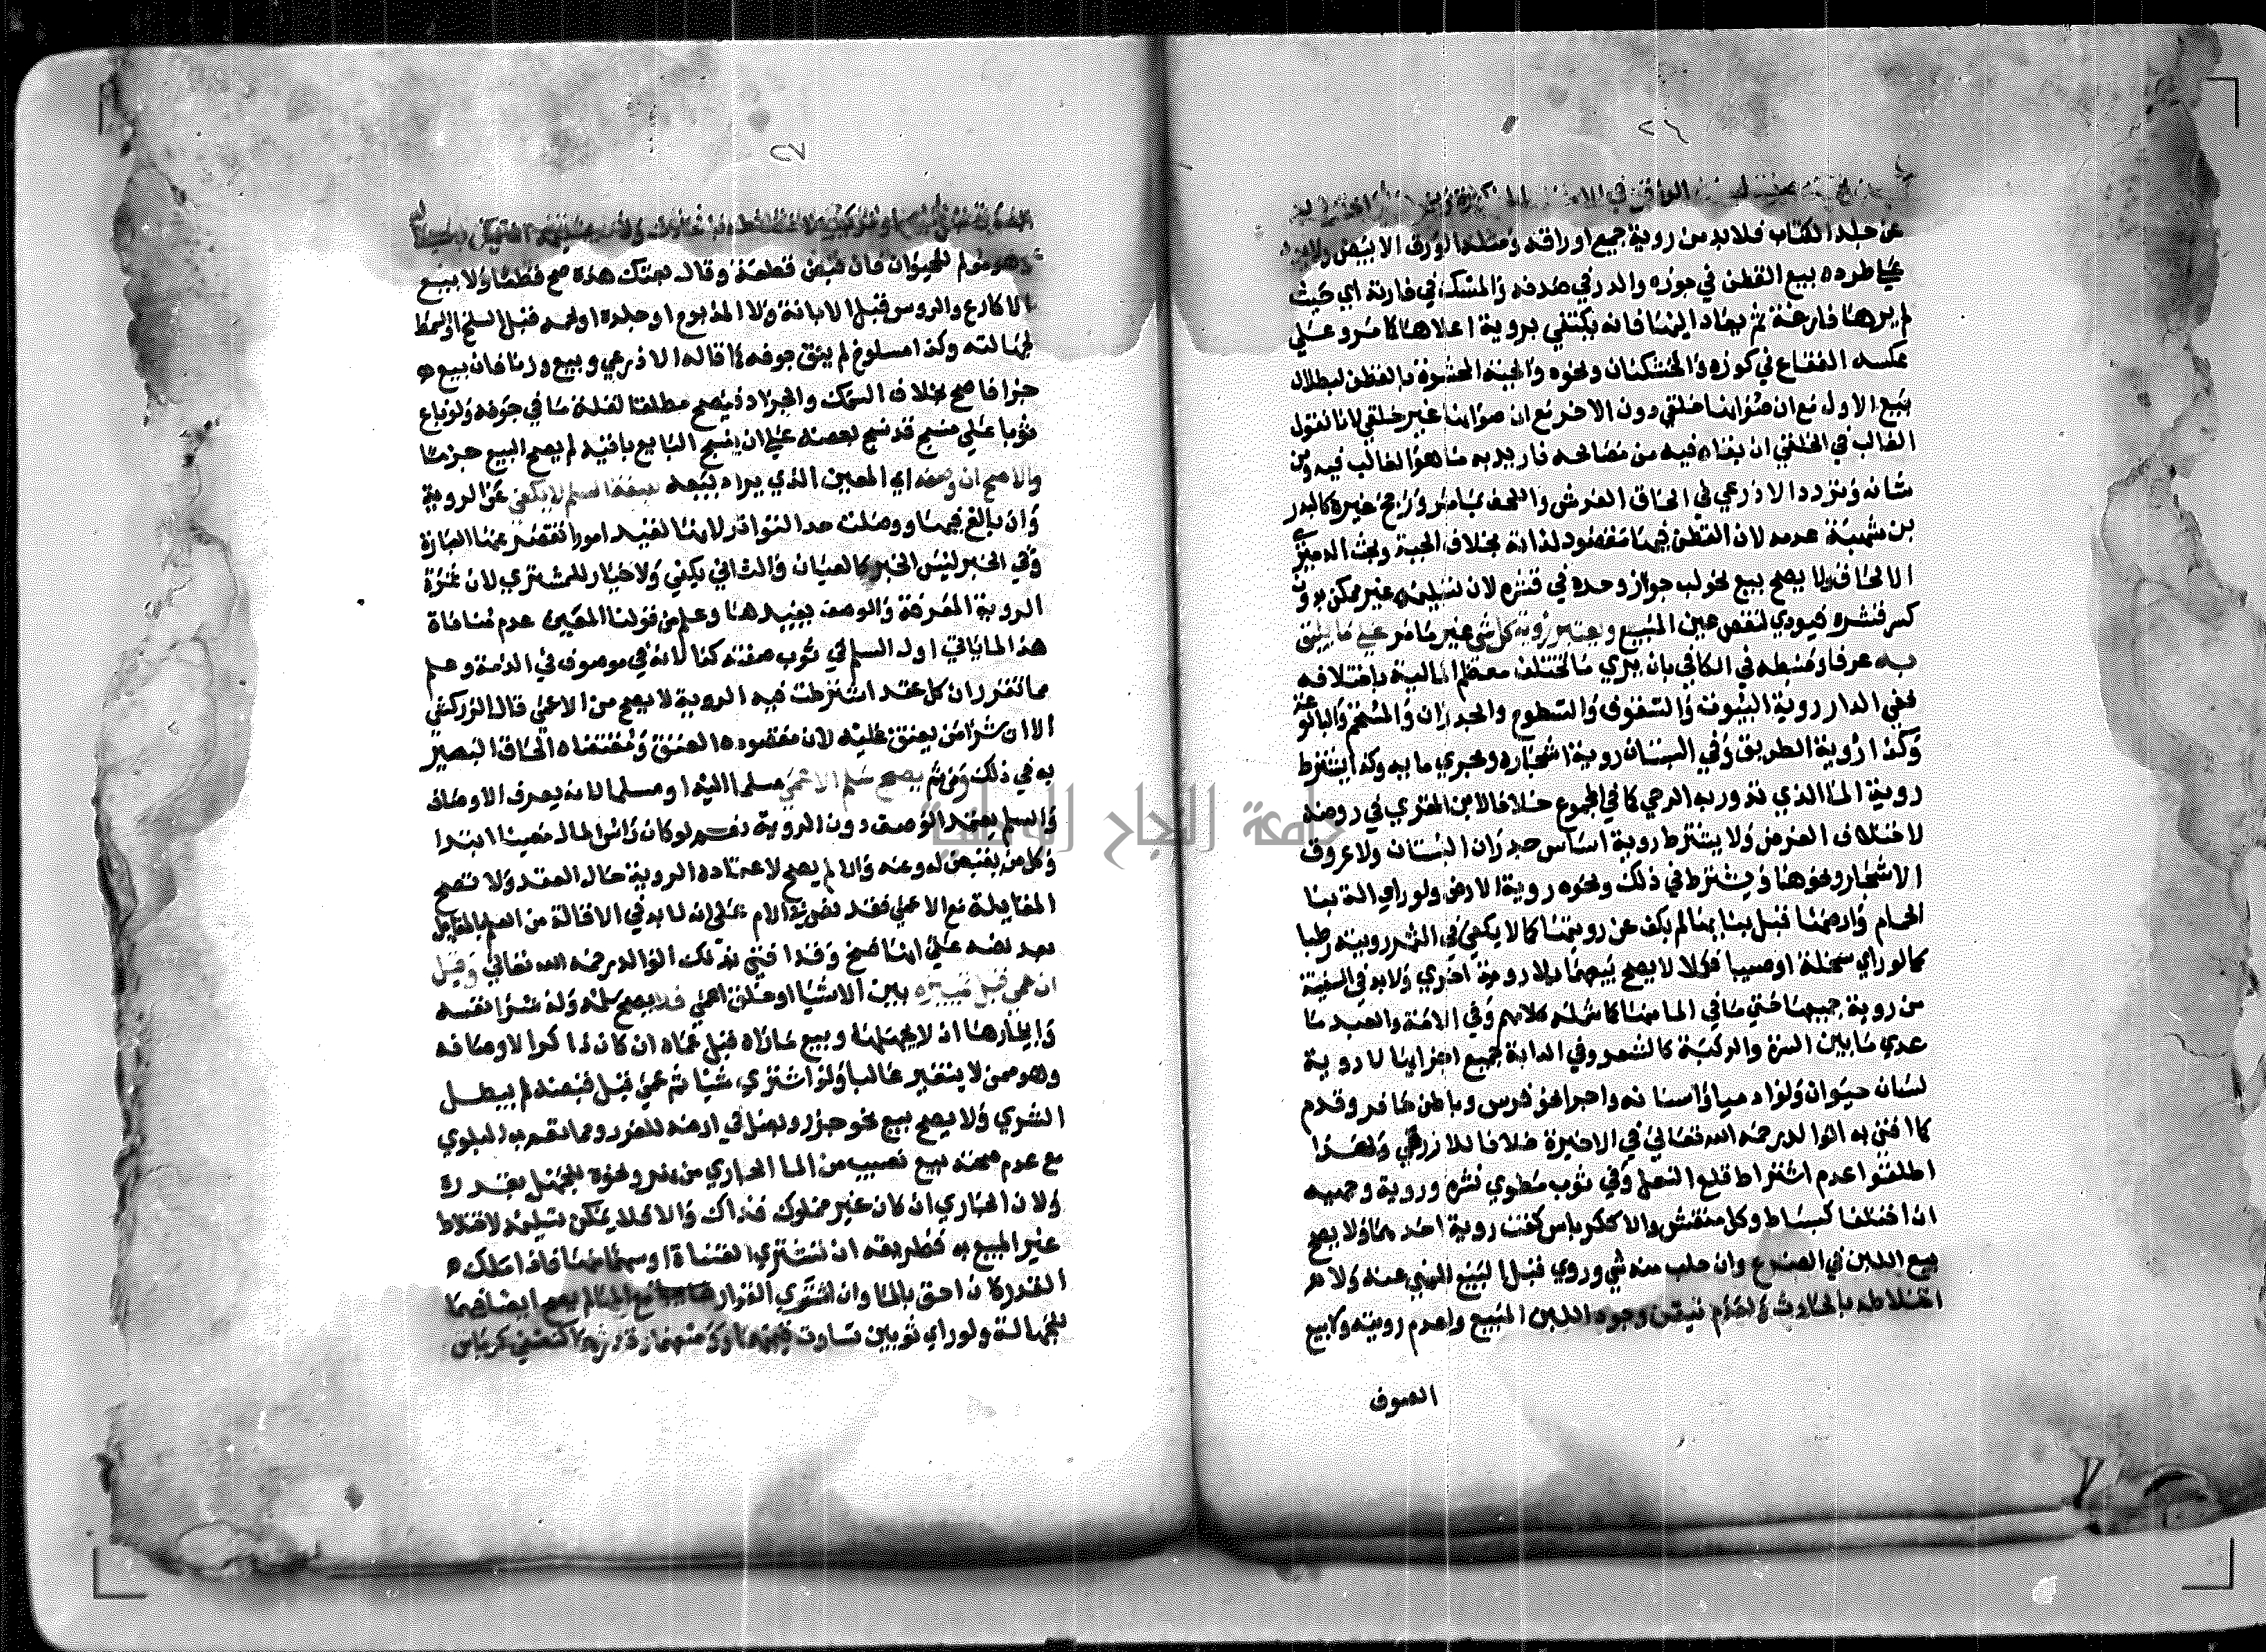 ٢٦
عن جلد الكتاب فلابد من روية جميع اوراقه ومثله الورق الابيض ولا يرد
علي طرده بيع القطن في جوزه والدر في صدفه والمسك في فارته اي حيث
لم يرها فارغة ثم يعاد اليها فانه يكتفي بروية اعلاها كما مر وعلي
عكسه الفقاع في كوزه والخشكنان ونحوه والجبة المحشوة بالقطن لبطلان
بيع الاول مع ان صوانها خلقي دون الاخر مع ان صوانها غير خلقي لانا نقول
الغالب في الخلقي ان بقاه فيه من مصالحه فاريد به ما هو الغالب فيه ومن
شانه وتردد الاذرعي في الحاق الفرش واللحف بما مر ورجح غيره كالبدر
بن شهبة عدمه لان القطن فيها مقصود لذاته بخلاف الجبة وبحث الدميري
الالحاق ولا يصح بيع نحو لب جواز وحده في قشره لان تسليمه غير ممكن بدون
كسر قشره فيودي لنقص عين المبيع ويعتبر روية كل شي غير ما مر علي ما يليق
به عرفا وضبطه في الكافي بان يري ما تختلف معظم المالية باختلافه
ففي الدار روية البيوت والسقوف والسطوح والجدران والمستحم والبالوعة
وكذا روية الطريق وفي البستان روية اشجاره ومجري مايه وكذا يشترط
روية الما الذي تدور به الرحي كما في المجموع خلافا لابن المقري في روضه
لاختلاف الغرض ولا يشترط روية اساس جدران البستان ولا عروق
الاشجار ونحوها ويشترط في ذلك ونحوه روية الارض ولو راي الة بنا
الحمام وارضها قبل بنايها لم يكف عن رويتها كما لا يكفي في التمر رويته رطبا
كما لو راي سخلة او صبيا فكملا لا يصح بيعهما بلا روية اخري ولابد في السفينة
من روية جميعها حتي ما في الما منها كما شمله كلامهم وفي الامة والعبد ما
عدي ما بين السرة والركبة كالشعر وفي الدابة جميع اجزايها لا روية
لسان حيوان ولو ادميا واسنانه واجرا نحو فرس وباطن حافر وقدم
كما افتي به الوالد رحمه الله تعالي في الاخيرة خلافا للاذرعي ولهذا
اطلقوا عدم اشتراط قلع النعل وفي ثوب مطوي نشره وروية وجهيه
ان اختلفا كبساط وكل منقش والا ككرباس كفت روية احدهما ولا يصح
بيع اللبن في الضرع وان حلب منه شي وروي قبل البيع للنهي عنه ولا
اختلاطه بالحادث ولعدم تيقن وجود اللبن المبيع ولعدم رويته ولا بيع
الصوف
٢٧
وهو مولم للحيوان فان قبض قطعة وقال بعتك هذه صح قطعا ولا بيع
الاكارع والروس قبل الابانة ولا المذبوح او جلده او لحمه قبل السلخ او السمط
لجهالته وكذا مسلوخ لم ينق جوفه كما قاله الاذرعي وبيع وزنا فان بيع
جزافا صح بخلاف السمك والجراد فيصح مطلقا لقلة ما في جوفه ولو باع
ثوبا علي منسج قد نسج بعضه علي ان ينسج البايع باقيه لم يصح البيع جزما
والاصح ان وصفه اي المعين الذي يراد بيعه بصفة السلم لا يكفي عن الروية
وان بالغ فيها ووصلت حد التواتر لانها تفيد امورا تقصر عنها العبارة
وفي الخبر ليس الخبر كالعيان والثاني يكفي ولا خيار للمشتري لان ثمرة
الروية المعرفة والوصف يفيدها وعلم من قولنا المعين عدم منافاة
هذا لما ياتي اول السلم في ثوب صفته كذا لانه في موصوف في الذمة وعلم
مما تقرر ان كل عقد اشترطت فيه الروية لا يصح من الاعمي قال الزركشي
الا ان شرا من يعتق عليه لان مقصوده العتق ومقتضاه الحاق البصير
به في ذلك ومن ثم يصح سلم الاعمي مسلما اليه او مسلما لانه يعرف الاوصاف
والسلم يعتمد الوصف دون الروية نعم لو كان راس المال معينا ابتدا
وكل من يقبض له وعنه والا لم يصح لاعتماده الروية حال العقد ولا تصح
المقايلة مع الاعمي فقد نص في الام علي انه لابد في الاقالة من العلم بالمقايل
بعد نصه علي انها فسخ وقد افتي بذلك الوالد رحمه الله تعالي وقيل
ان عمي قبل تمييزه بين الاشيا او خلق اعمي فلا يصح سلمه وله شرا نفسه
وايجارها اذ لا يجهلها وبيع ما راه قبل عماه ان كان ذاكرا لاوصافه
وهو مما لا يتغير غالبا ولو اشتري شيا ثم عمي قبل قبضه لم يبطل
الشري ولا يصح بيع نحو جزر وبصل في ارضه للغرر ومما تعم به البلوي
مع عدم صحته بيع نصيب من الما الجاري من نهر ونحوه للجهل بقدره
ولان الجاري ان كان غير مملوك فذاك والا فلا يمكن تسليمه لاختلاط
غير المبيع به فطريقه ان تشتري القناة او سهما منها فاذا ملك
القدر كان احق بالما وان اشتري القرار مع الما لم يصح ايضا فيهما
للجهالة ولو راي ثوبين تساوت قيمتهما كنصفي كرباس